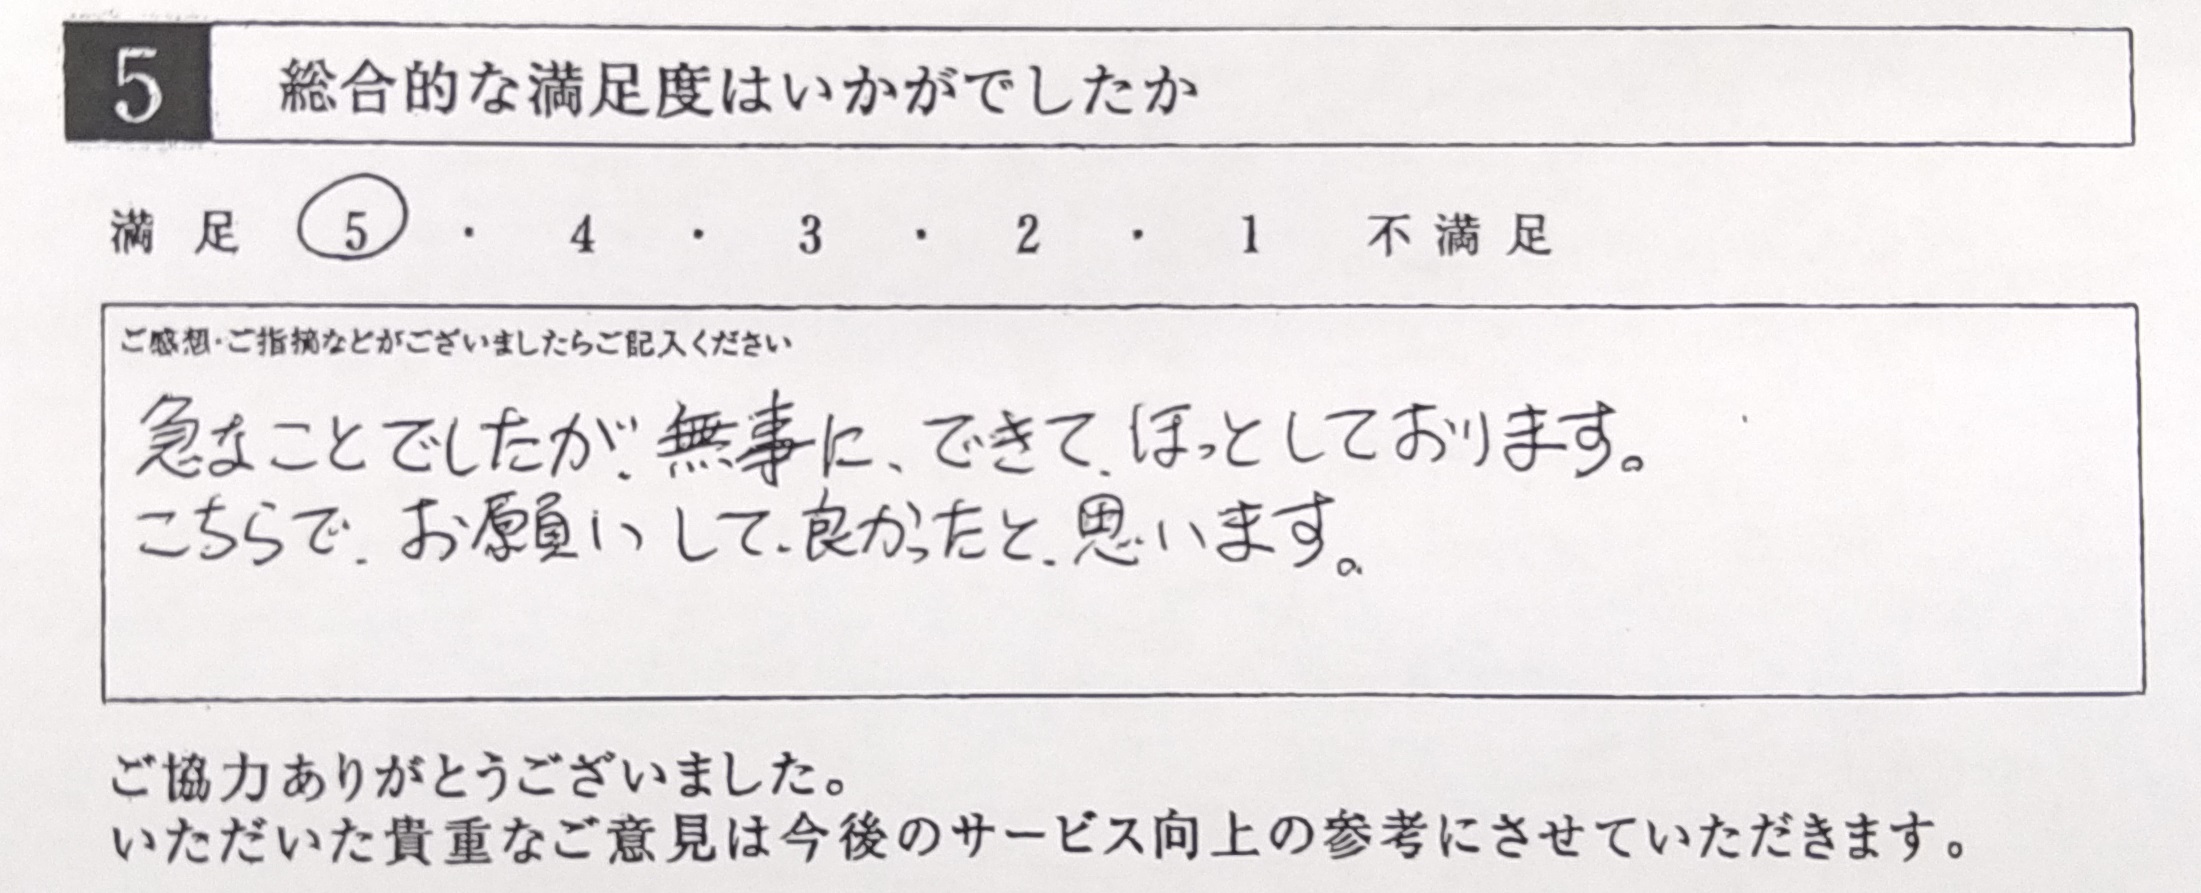 5 総合的な満足度はいかがでしたか
満足 5 ・ 4 ・ 3 ・ 2 ・ 1 不満足
ご感想・ご指摘などがございましたらご記入ください
急なことでしたが、無事に、できて、ほっとしております。
こちらで、お願いして、良かったと、思います。
ご協力ありがとうございました。
いただいた貴重なご意見は今後のサービス向上の参考にさせていただきます。